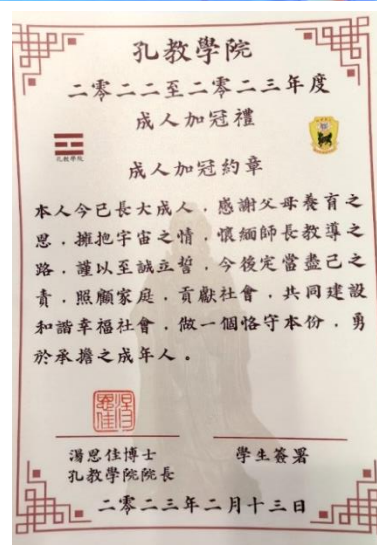 孔教學院
二零二二至二零二三年度
成人加冠禮
孔教學院
成人加冠約章
本人今已長大成人，感謝父母養育之
恩，擁抱宇宙之情，懷緬師長教導之
路，謹以至誠立誓，今後定當盡己之
責，照顧家庭，貢獻社會，共同建設
和諧幸福社會，做一個恪守本份，勇
於承擔之成年人。
湯恩佳博士
孔教學院院長
學生簽署
二零二三年二月十三日